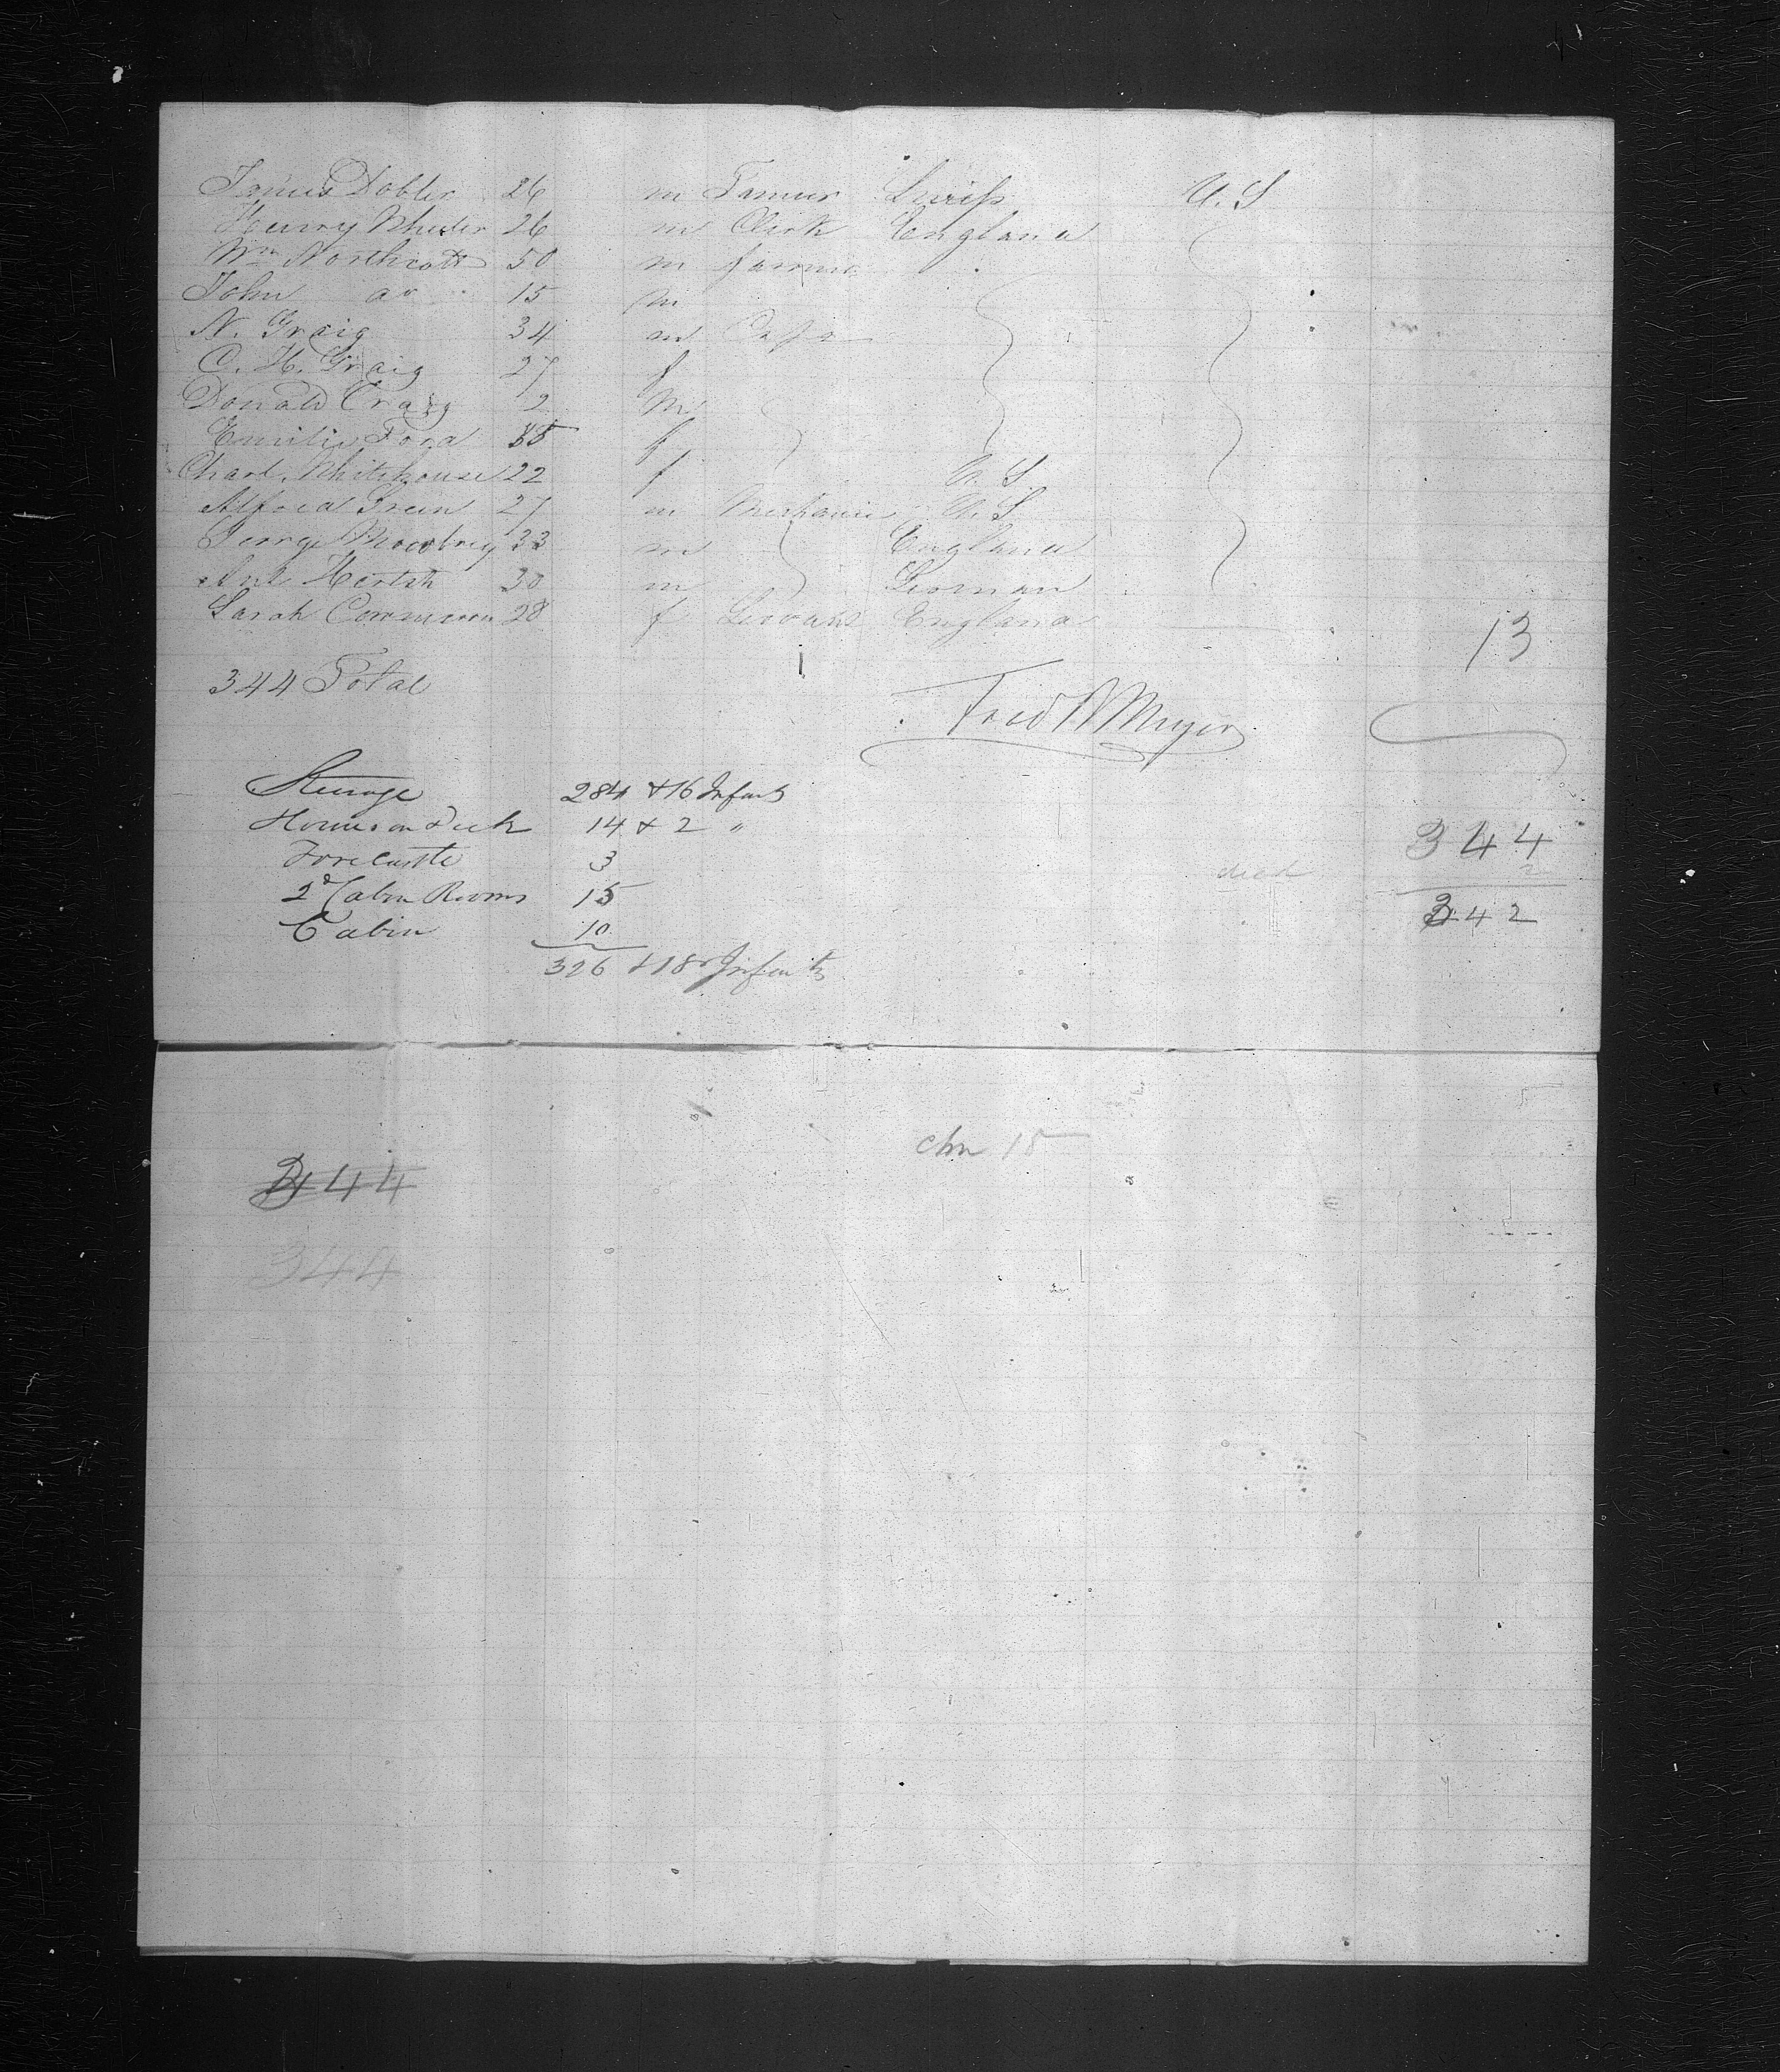 Dobler 26 m Farmer Swiss U.S
Henry Wheeler 26 m Clerk England
Wm Northcott 50 m farmer
John do 15 m
N. Graig 34 m
C. H. Graig 27 f
Donald Craig 2 m
Emilie Ford 35 f
Charl. Whitehouse 22 f U.S.
Alfred Green 27 m Mechanic U.S
George Mowbray 33 m England
Hertsh 30 m German
Sarah 28 f Servant England
13
344 Total
Meyer
Steerage 284 & 16 Infants
House on deck 14 & 2 "
Forecastle 3
2d Cabin Rooms 15
Cabin 10
326 + 18 Infants
344
died 2
342
344
chn 18
344